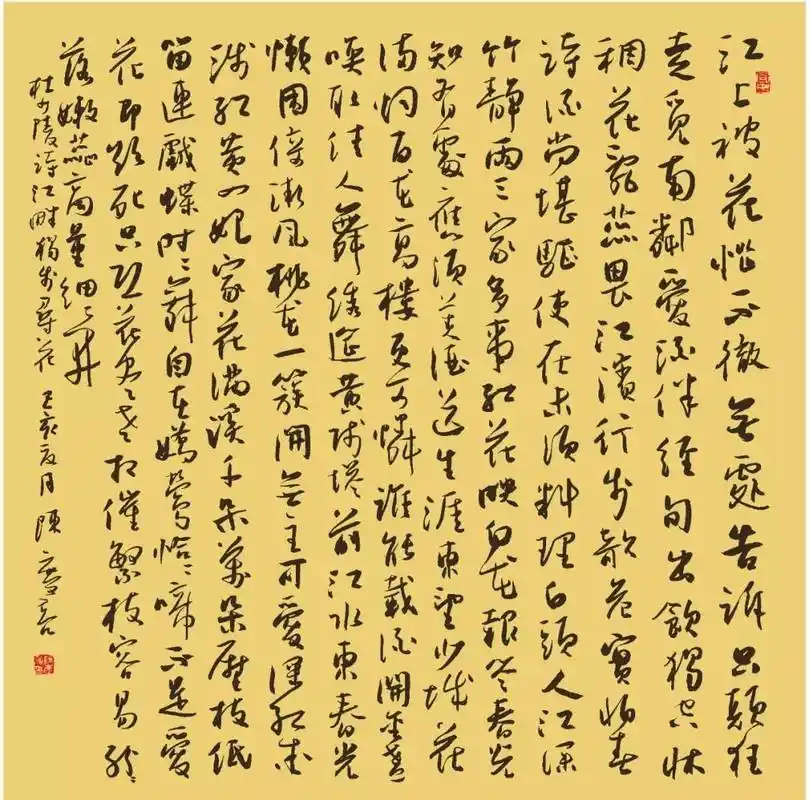 江上被花惱不徹無處告訴只顛狂
走覓南鄰愛酒伴經旬出飲獨空床
稠花亂蕊畏江濱行步欹危實怕春
詩酒尚堪驅使在未須料理白頭人江深
竹靜兩三家多事紅花映白花報答春光
知有處應須美酒送生涯東望少城花
滿烟百花高樓更可憐誰能載酒開金盞
喚取佳人舞繡筵黃師塔前江水東春光
懶困倚微風桃花一簇開無主可愛深紅愛
淺紅黃四娘家花滿溪千朵萬朵壓枝低
留連戲蝶時〻舞自在嬌鶯恰〻啼不是愛
花即欲死只恐花盡老相催繁枝容易紛〻
落嫩蕊商量細〻開
杜少陵詩江畔獨步尋花 己亥夏月 陳慶